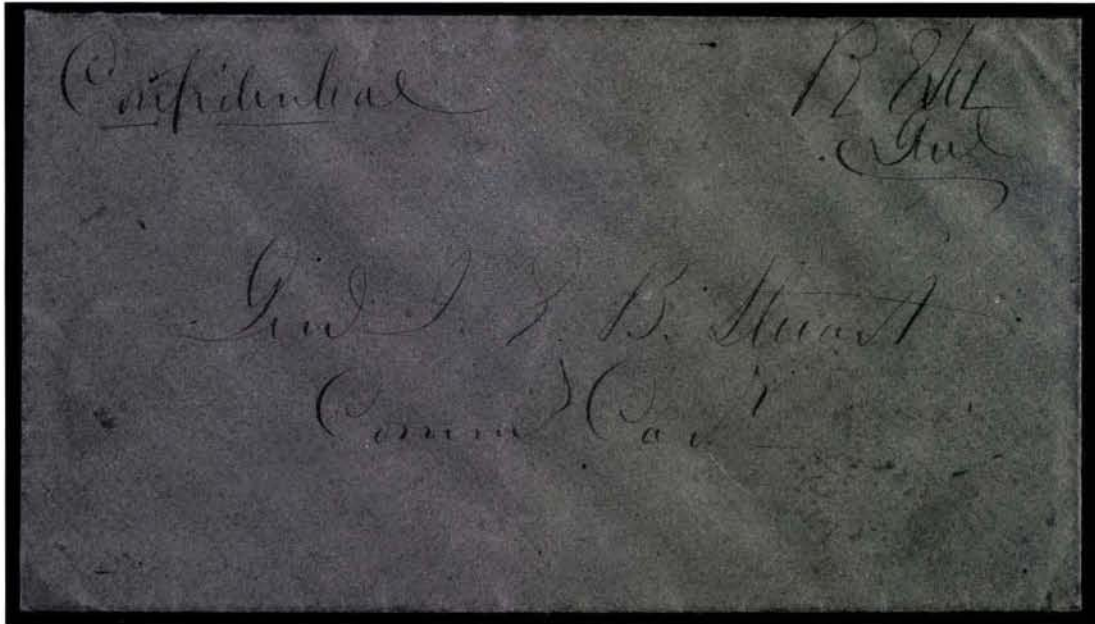 Confidential
R E Lee
Genl
Genl J. E. B. Stuart
Comm'd Cav'y